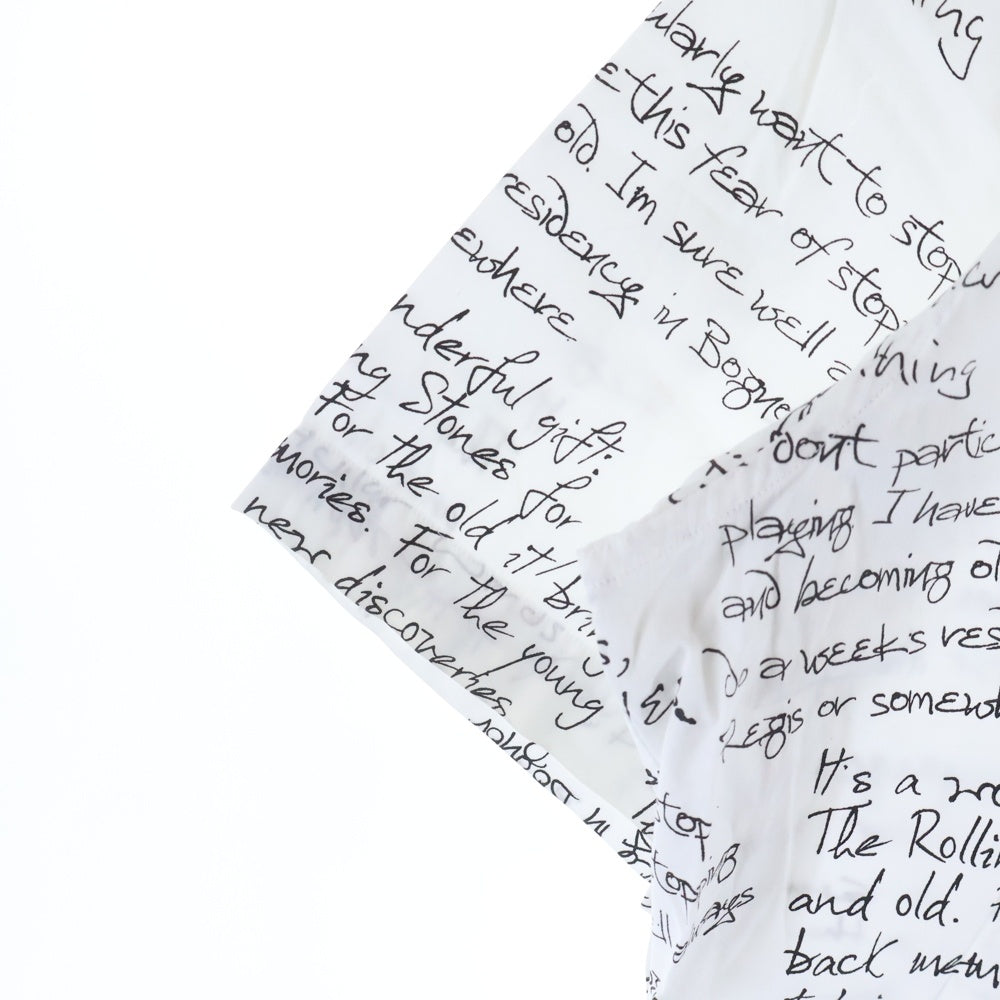 ing
ularly want to stop
e this fear of stop
old. I'm sure we'll a
residency in Bogno
ewhere
nderful gift.
ng Stones for
For the old it'll brin
mories. For the young
new discoveries
thing
don't partic
playing I have
and becoming ol
do a weeks resi
Regis or somewh
It's a wo
The Rolli
and old.
back mem
top
stop
ways